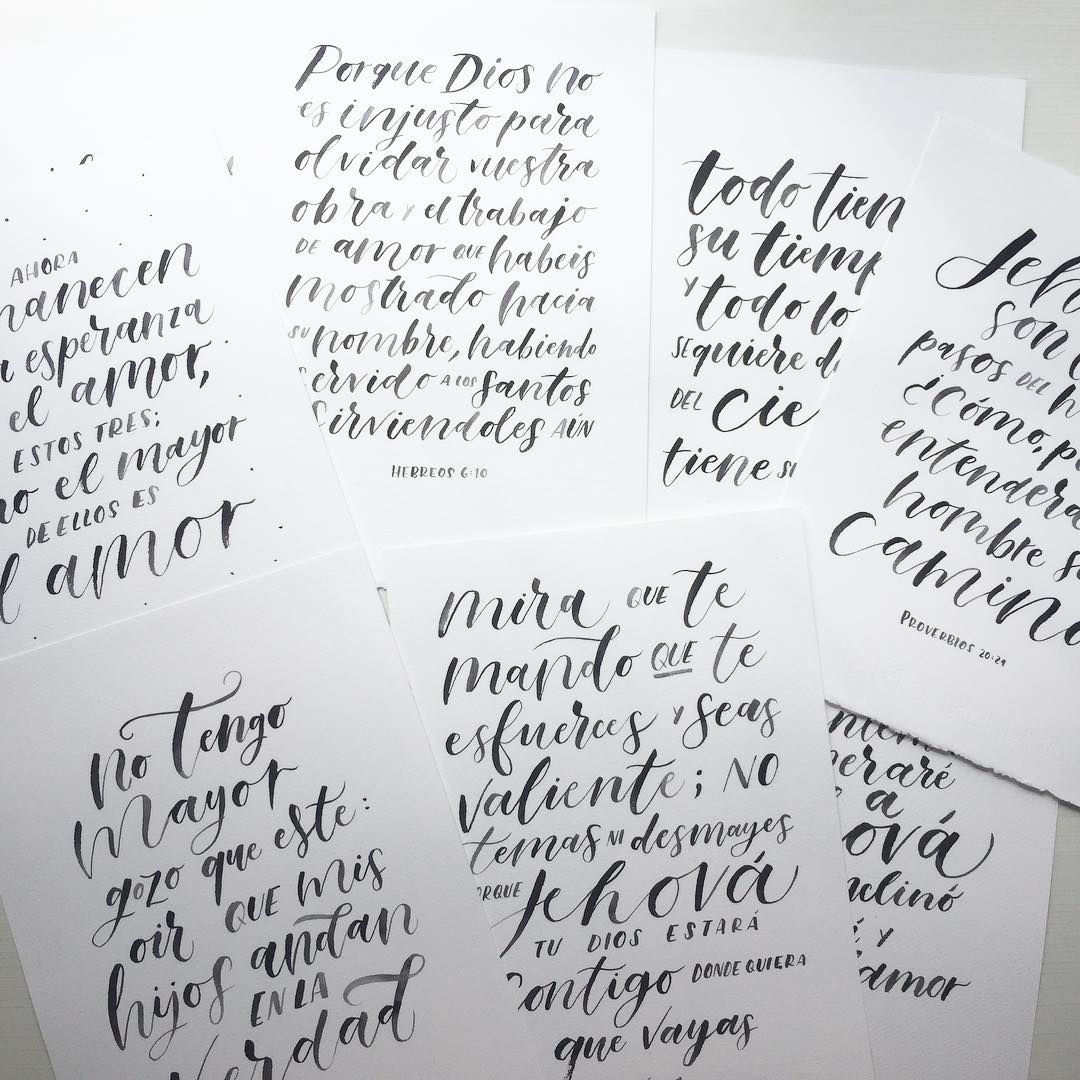 AHORA
esperanza
el amor,
ESTOS TRES;
el mayor
DE ELLOS ES
amor
Porque Dios no
es injusto para
olvidar vuestra
obra y el trabajo
DE amor QUE habeis
mostrado hacia
su nombre, habiendo
servido A LOS santos
sirviendoles AÚN
HEBREOS 6:10
todo tien
su tiemp
y todo lo
SE quiere d
DEL cie
tiene
Jeh
son
pasos DEL h
¿Cómo, p
entenderá
hombre s
camino
PROVERBIOS 20:24
no tengo
mayor
gozo que este:
oir QUE mis
hijos andan
EN LA
verdad
mira QUE te
mando QUE te
esfuerces y seas
valiente; NO
temas NI desmayes
PORQUE Jehová
TU DIOS ESTARÁ
contigo DONDE QUIERA
que vayas
eraré
a
ová
clinó
y
amor